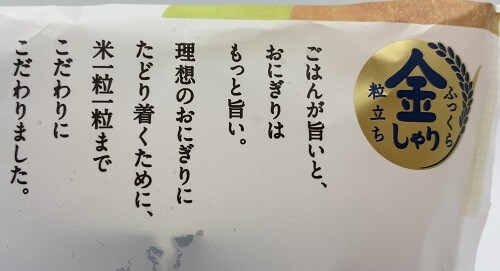 ふっくら
金
しゃり
粒立ち
ごはんが旨いと、
おにぎりは
もっと旨い。
理想のおにぎりに
たどり着くために、
米一粒一粒まで
こだわりに
こだわりました。